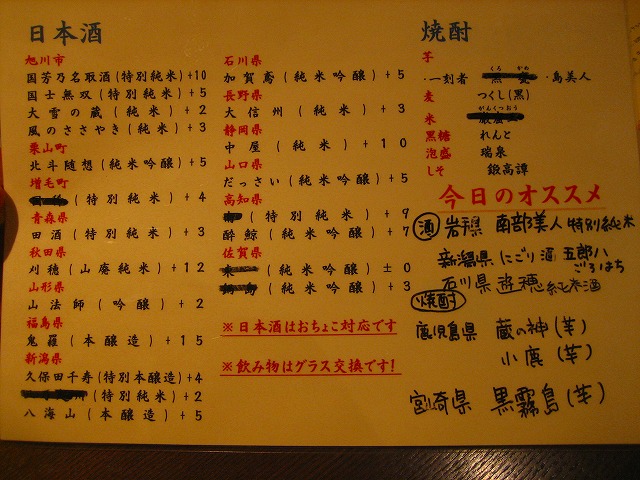 日本酒
旭川市
国芳乃名取酒(特別純米)+10
国士無双(特別純米)+5
大雪の蔵(純米)+2
風のささやき(純米)+3
栗山町
北斗随想(純米吟醸)+5
増毛町
(特別純米)+4
青森県
田酒(特別純米)+3
秋田県
刈穂(山廃純米)+12
山形県
山法師(吟醸)+2
福島県
鬼羅(本醸造)+15
新潟県
久保田千寿(特別本醸造)+4
(特別純米)+2
八海山(本醸造)+5
石川県
加賀鳶(純米吟醸)+5
長野県
大信州(純米)+3
静岡県
中屋(純米)+10
山口県
だっさい(純米吟醸)+5
高知県
(特別純米)+9
酔鯨(純米吟醸)+7
佐賀県
(純米吟醸)±0
鍋島(純米吟醸)+3
※日本酒はおちょこ対応です
※飲み物はグラス交換です!
焼酎
芋
くろ かめ
・一刻者 ・島美人
麦 つくし(黒)
がんくつおう
米
黒糖 れんと
泡盛 瑞泉
しそ 鍛高譚
今日のオススメ
酒 岩手県 南部美人 特別純米
新潟県 にごり酒 五郎八
ごろはち
石川県 遊穂 純米酒
焼酎
鹿児島県 蔵の神(芋)
小鹿(芋)
宮崎県 黒霧島(芋)